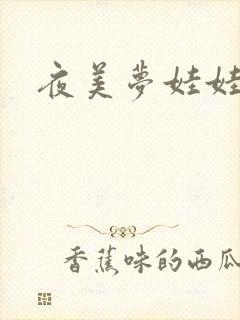 夜美夢娃娃
香蕉味的西瓜